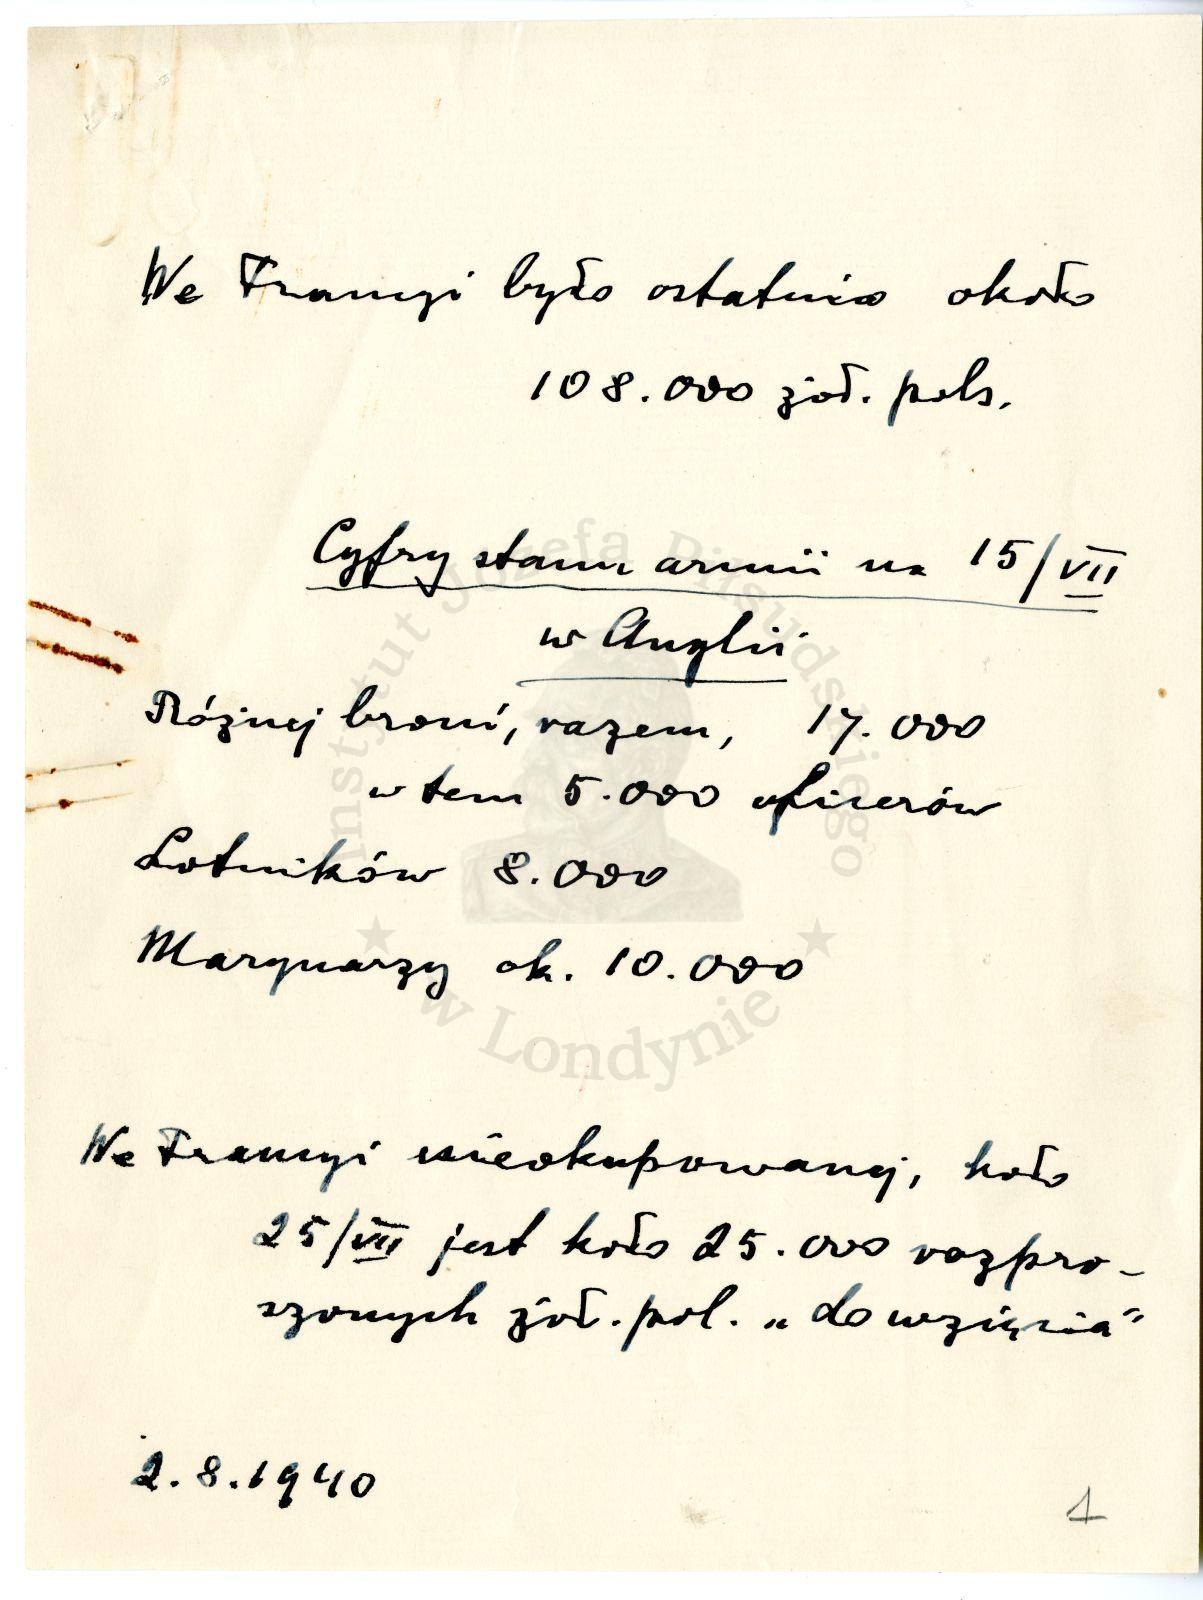 We Francyi było ostatnio około
108.000 żoł. pols.
Cyfry stanu armii na 15/VII
w Anglii
Różnej broni, razem, 17.000
w tem 5.000 oficerów
Lotników 8.000
Marynarzy ok. 10.000
We Francyi nieokupowanej, koło
25/VII jest koło 25.000 rozpro-
szonych żoł. pol. „do wzięcia"
2.8.1940
1
Instytut Józefa Piłsudskiego
w Londynie